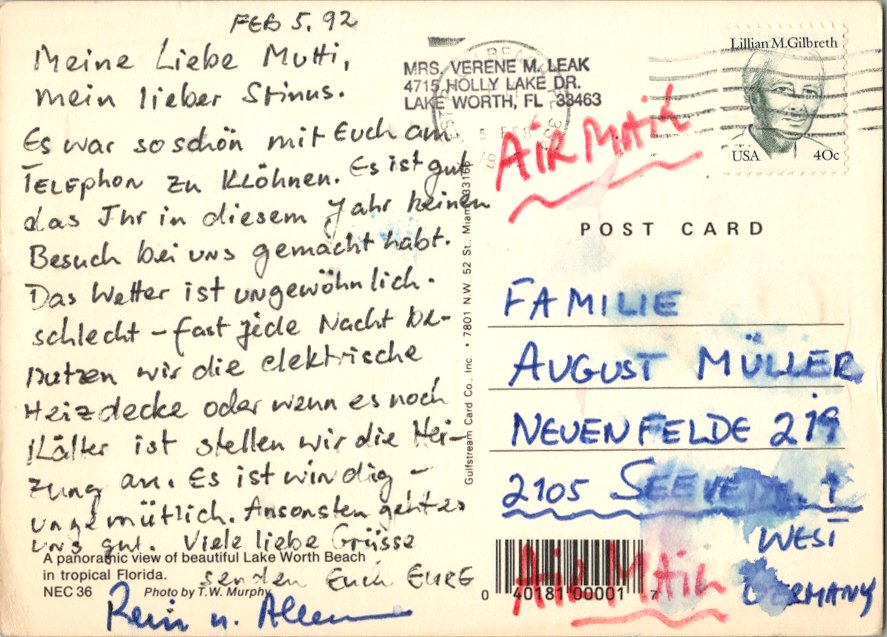 FEB 5, 92
Meine Liebe Mutti,
mein lieber Stinus.
Es war so schön mit Euch am
TELEPHON zu Klöhnen. Es ist gut
das Ihr in diesem Jahr keinen
Besuch bei uns gemacht habt.
Das Wetter ist ungewöhnlich
schlecht – fast jede Nacht be-
nutzen wir die elektrische
Heizdecke oder wenn es noch
Kälter ist stellen wir die Hei-
zung an. Es ist windig –
ungemütlich. Ansonsten geht es
uns gut. Viele liebe Grüsse
senden Euch EURE
A panoramic view of beautiful Lake Worth Beach
in tropical Florida.
NEC 36 Photo by T.W. Murphy
Gulfstream Card Co., Inc. • 7801 N.W. 52 St., Miami 33166
MRS. VERENE M. LEAK
4715 HOLLY LAKE DR.
LAKE WORTH, FL 33463
5 FEB
Lillian M. Gilbreth
USA 40c
AIR MAIL
POST CARD
FAMILIE
AUGUST MÜLLER
NEUENFELDE 219
2105 SEEVETAL 1
WEST
GERMANY
AIR MAIL
0 40181 00001 7